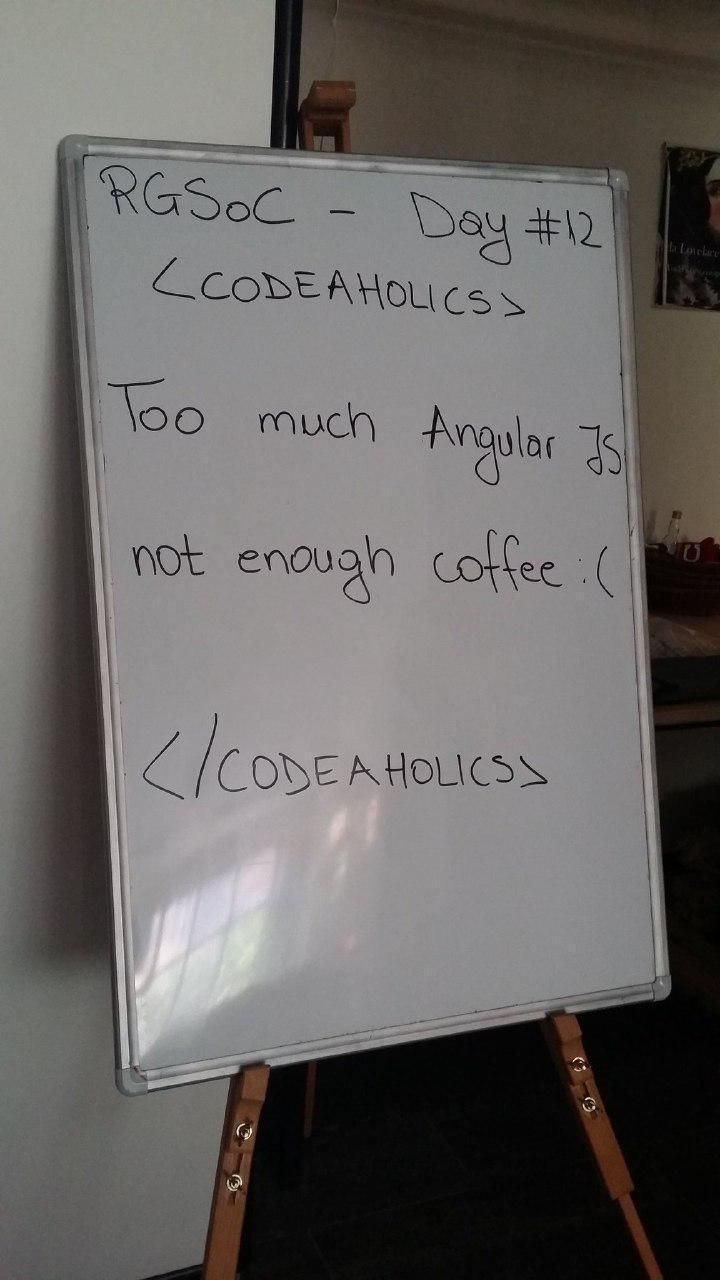 RGSoC - Day #12
<CODEAHOLICS>
Too much Angular JS
not enough coffee :(
</CODEAHOLICS>
Lovelace